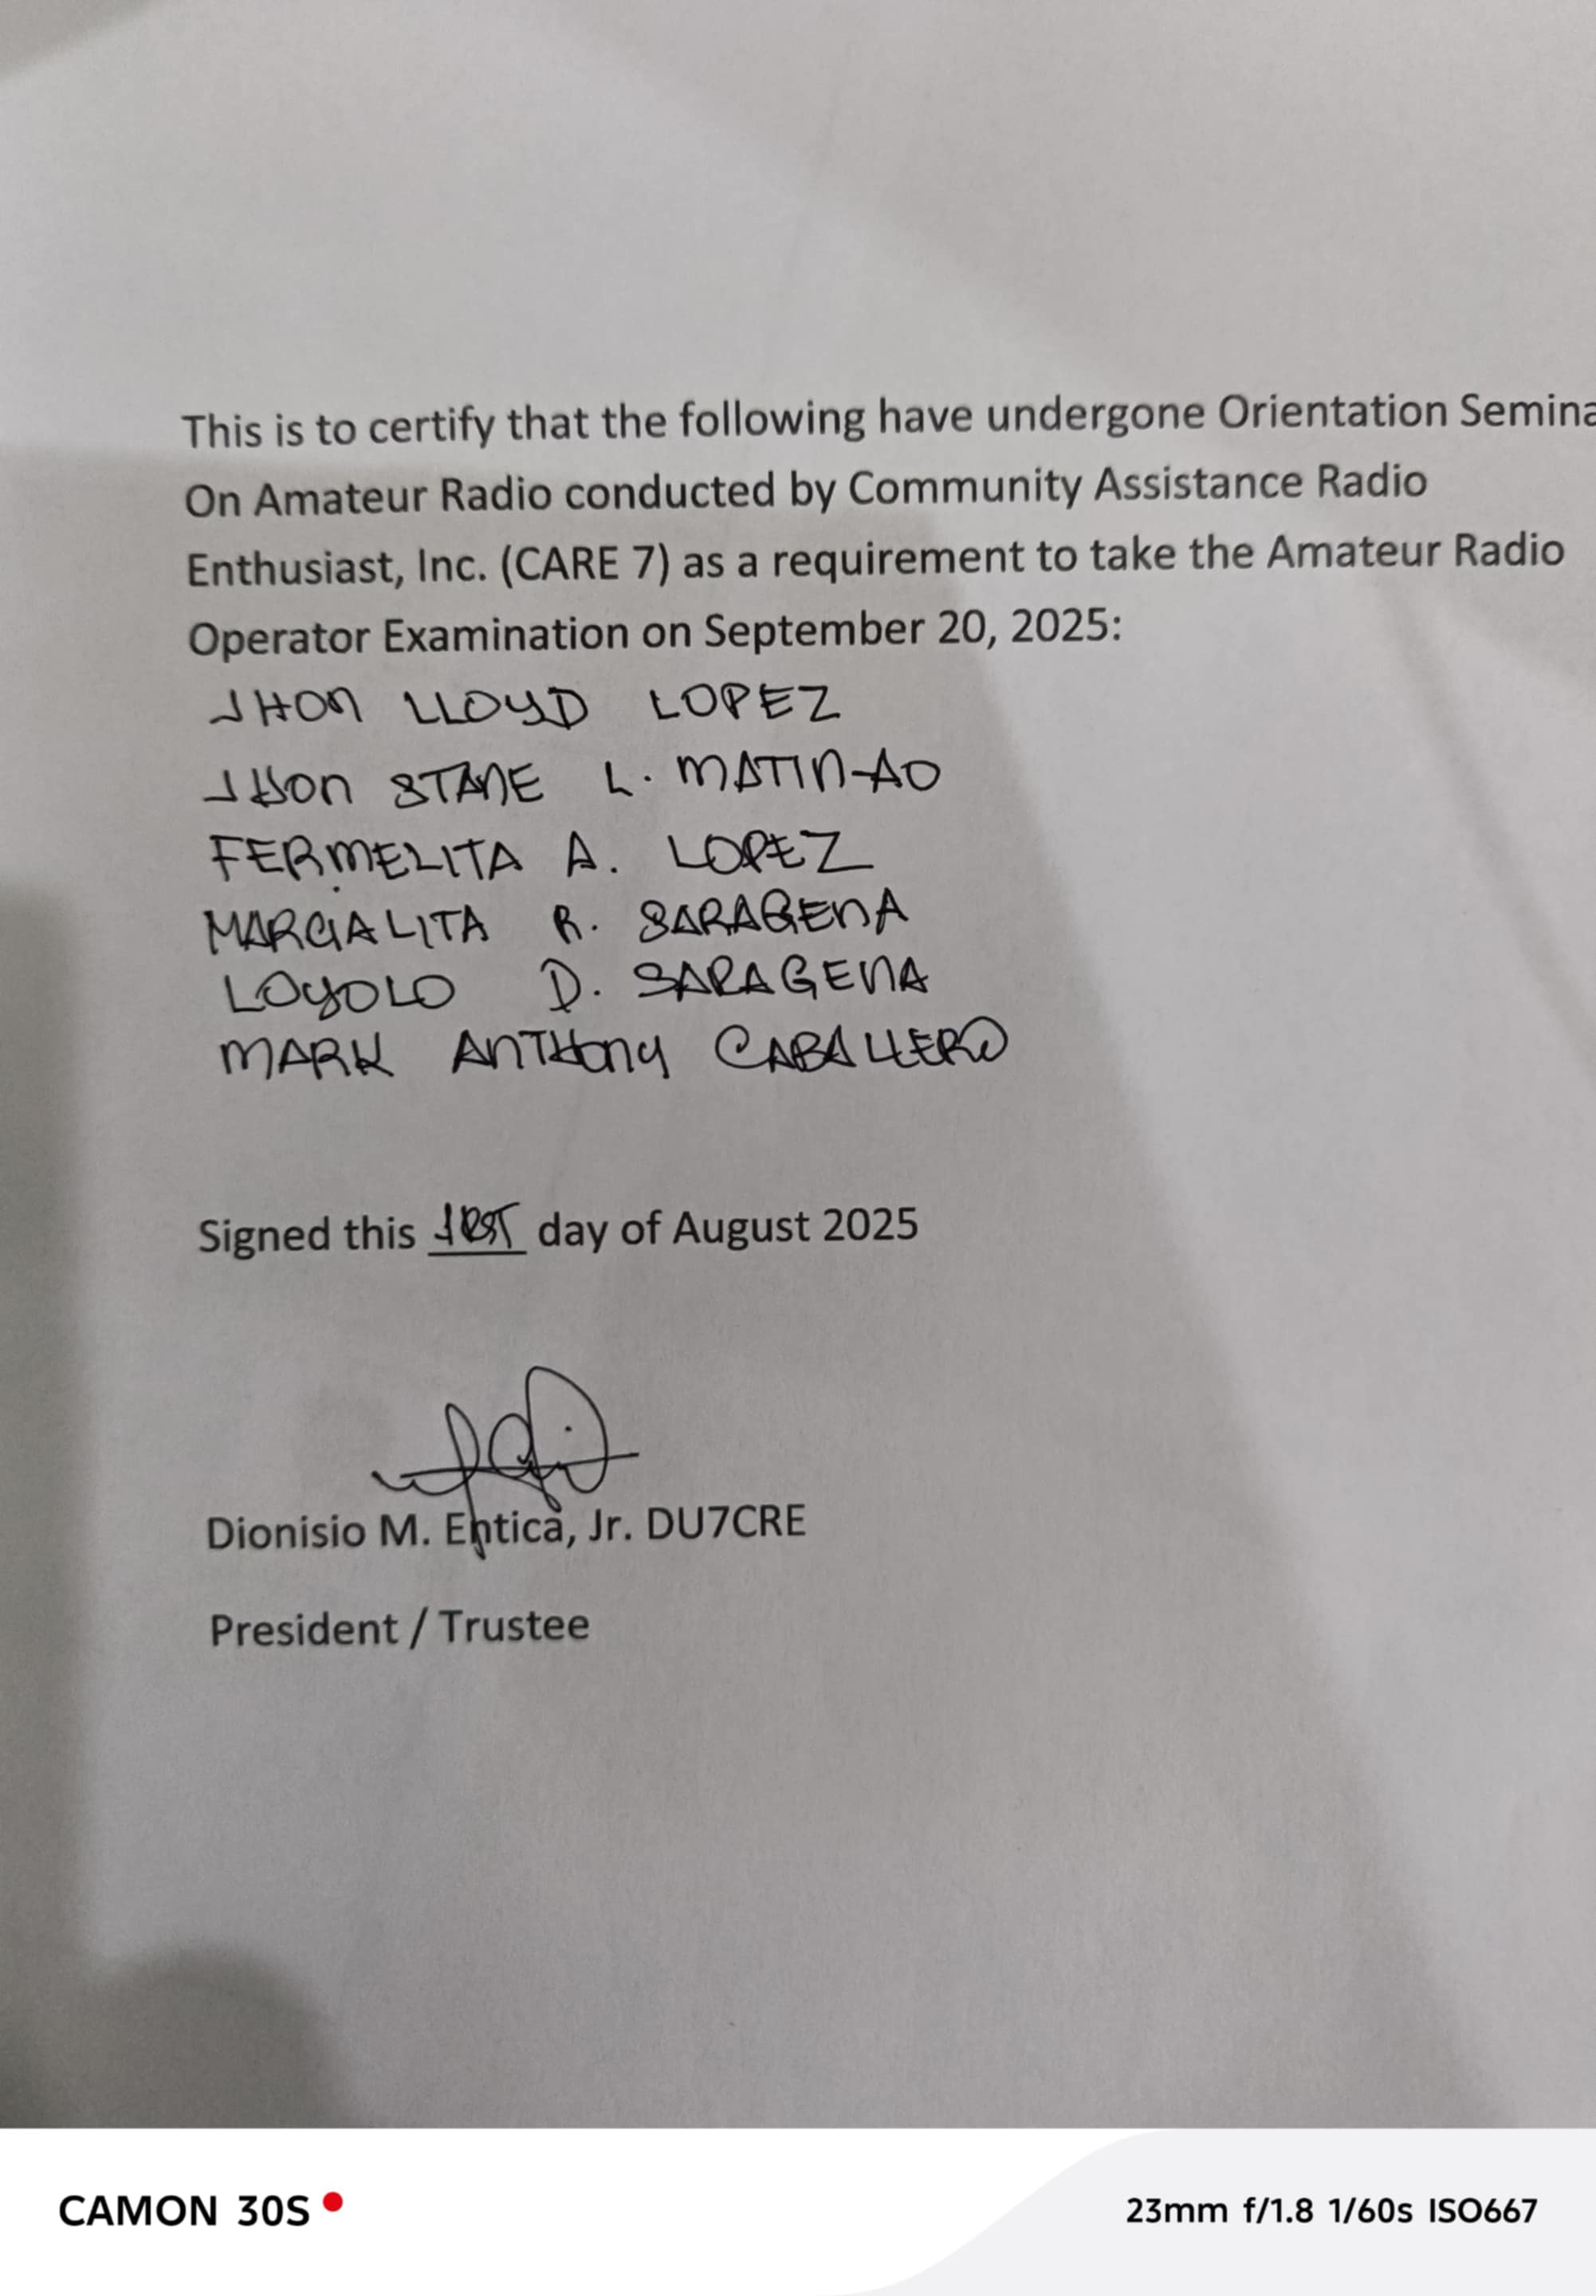 This is to certify that the following have undergone Orientation Semina
On Amateur Radio conducted by Community Assistance Radio
Enthusiast, Inc. (CARE 7) as a requirement to take the Amateur Radio
Operator Examination on September 20, 2025:
JHON LLOYD LOPEZ
JHON STANE L. MATIN-AO
FERMELITA A. LOPEZ
MARGIALITA R. SARAGENA
LOYOLO D. SARAGENA
MARK ANTHONY CABALLERO
Signed this day of August 2025
Dionisio M. Entica, Jr. DU7CRE
President / Trustee
CAMON 30S
23mm f/1.8 1/60s ISO667